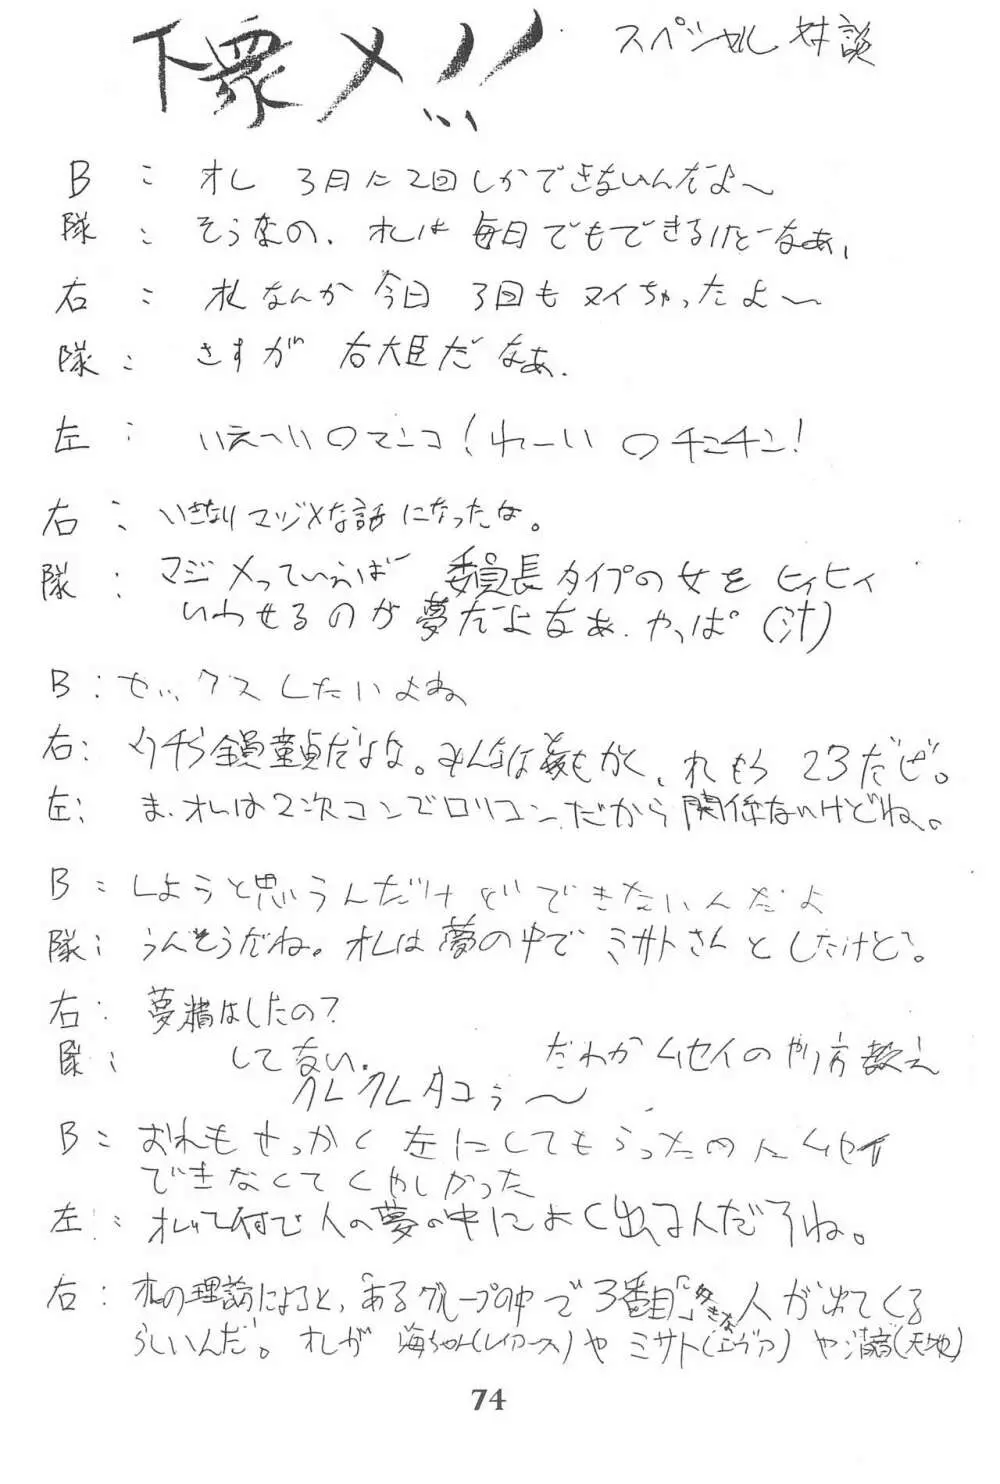 下衆メ!! スペシャル対談
B: オレ 3月に2回しかできないんだよ〜
隊: そうなの. オレは 毎日でもできるけどーなぁ.
右: オレなんか 今日 3回も ヌイちゃったよ〜
隊: さすが 右大臣だなぁ.
左: いえ〜い ○マンコ! れーい ○チンチン!
右: いきなりマジメな話になったな。
隊: マジメっていえば 委員長タイプの女を ヒィヒィ
いわせるのが夢だよなぁ. やっぱ (汁)
B: セックスしたいよね
右: ウチら全員童貞だよな。みんな
もう 23だぜ。
左: ま.オレは2次コンでロリコンだから関係ないけどね。
B: しようと思うんだけどできないんだよ
隊: うんそうだね。オレは夢の中で ミサトさんとしたけど。
右: 夢精はしたの?
隊: してない. だれか ムセイのやり方教え
クレクレタコら〜
B: おれもせっかく 左にしてもらったのに ムセイ
できなくてくやしかった
左: オレって何で人の夢の中によく出るんだろね。
右: オレの理論によると、「あるグループの中で3番目に好きな」人が出てくる
らしいんだ。オレが 海ちゃん(レイアース)や ミサト(エヴァ)や清音(天地)
74